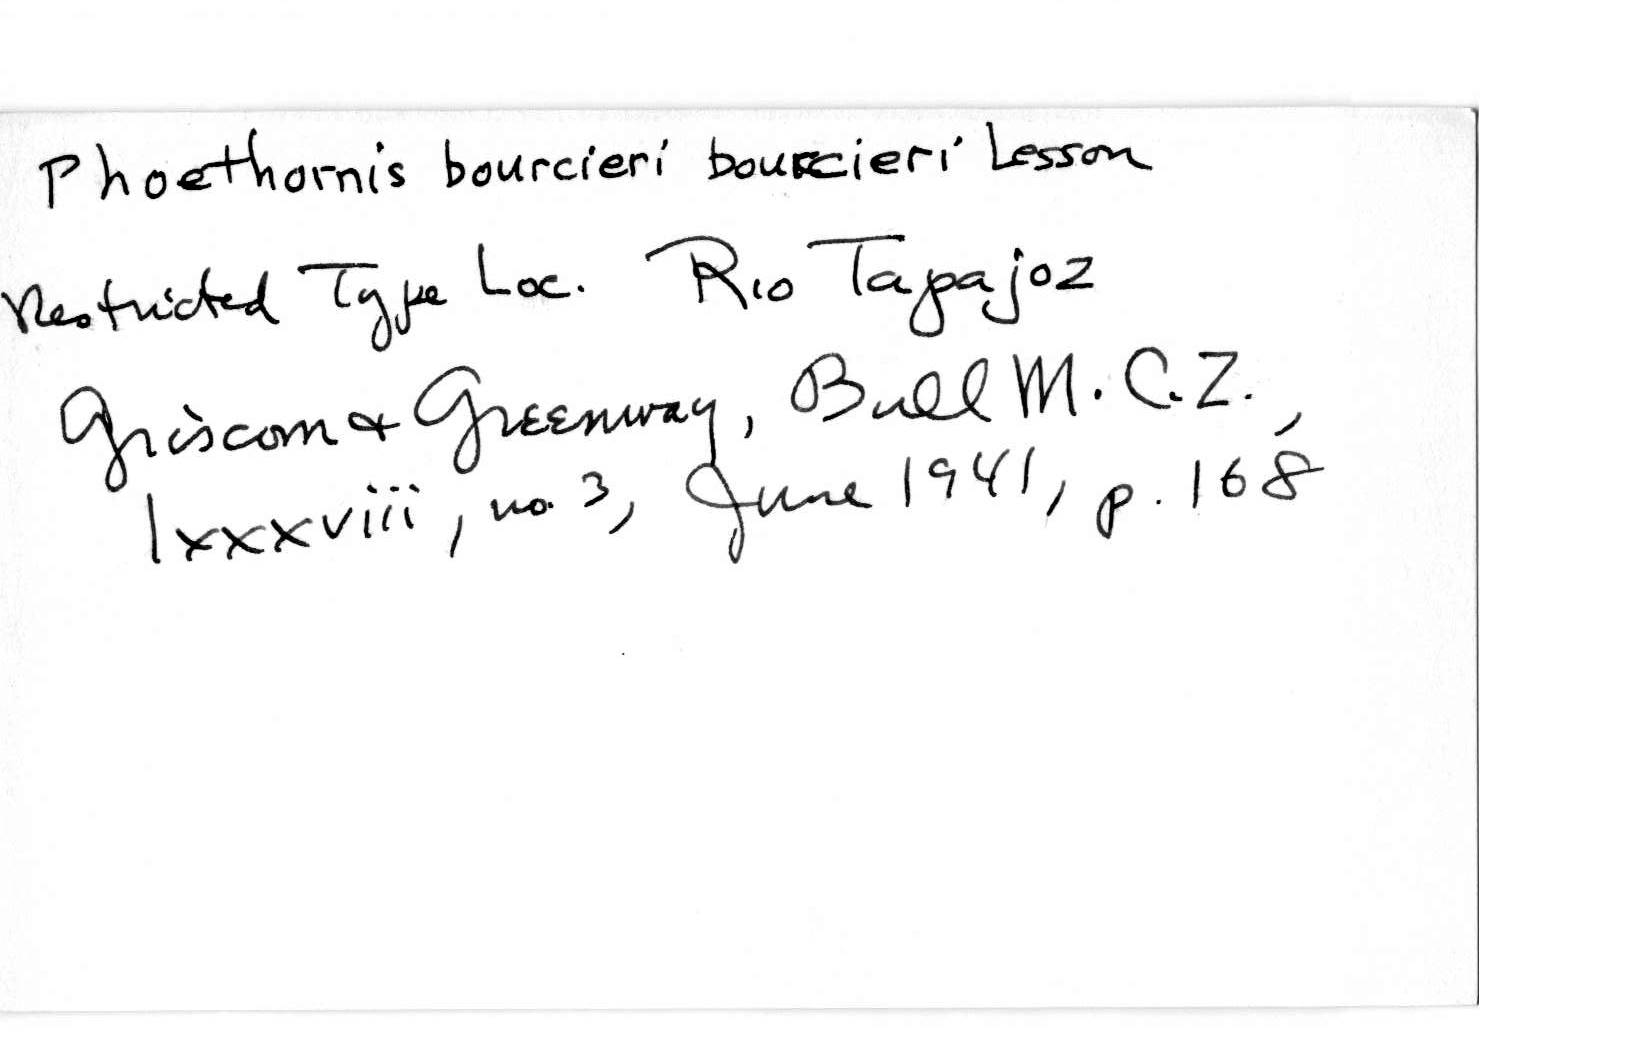 Phoethornis bourcieri bourcieri Lesson
Restricted Type Loc. Rio Tapajoz
Griscom & Greenway, Bull M.C.Z.,
lxxxviii, no. 3, June 1941, p. 168